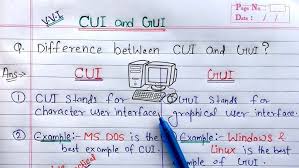 VVI
CUI and GUI
Page No:
Date: / /
Q. Difference between CUI and GUI?
Ans→
CUI
GUI
① CUI stands for character user interface.
① GUI stands for graphical user interface.
② Example:- MS DOS is the best example of CUI.
② Example:- Windows & Linux is the best example of GUI